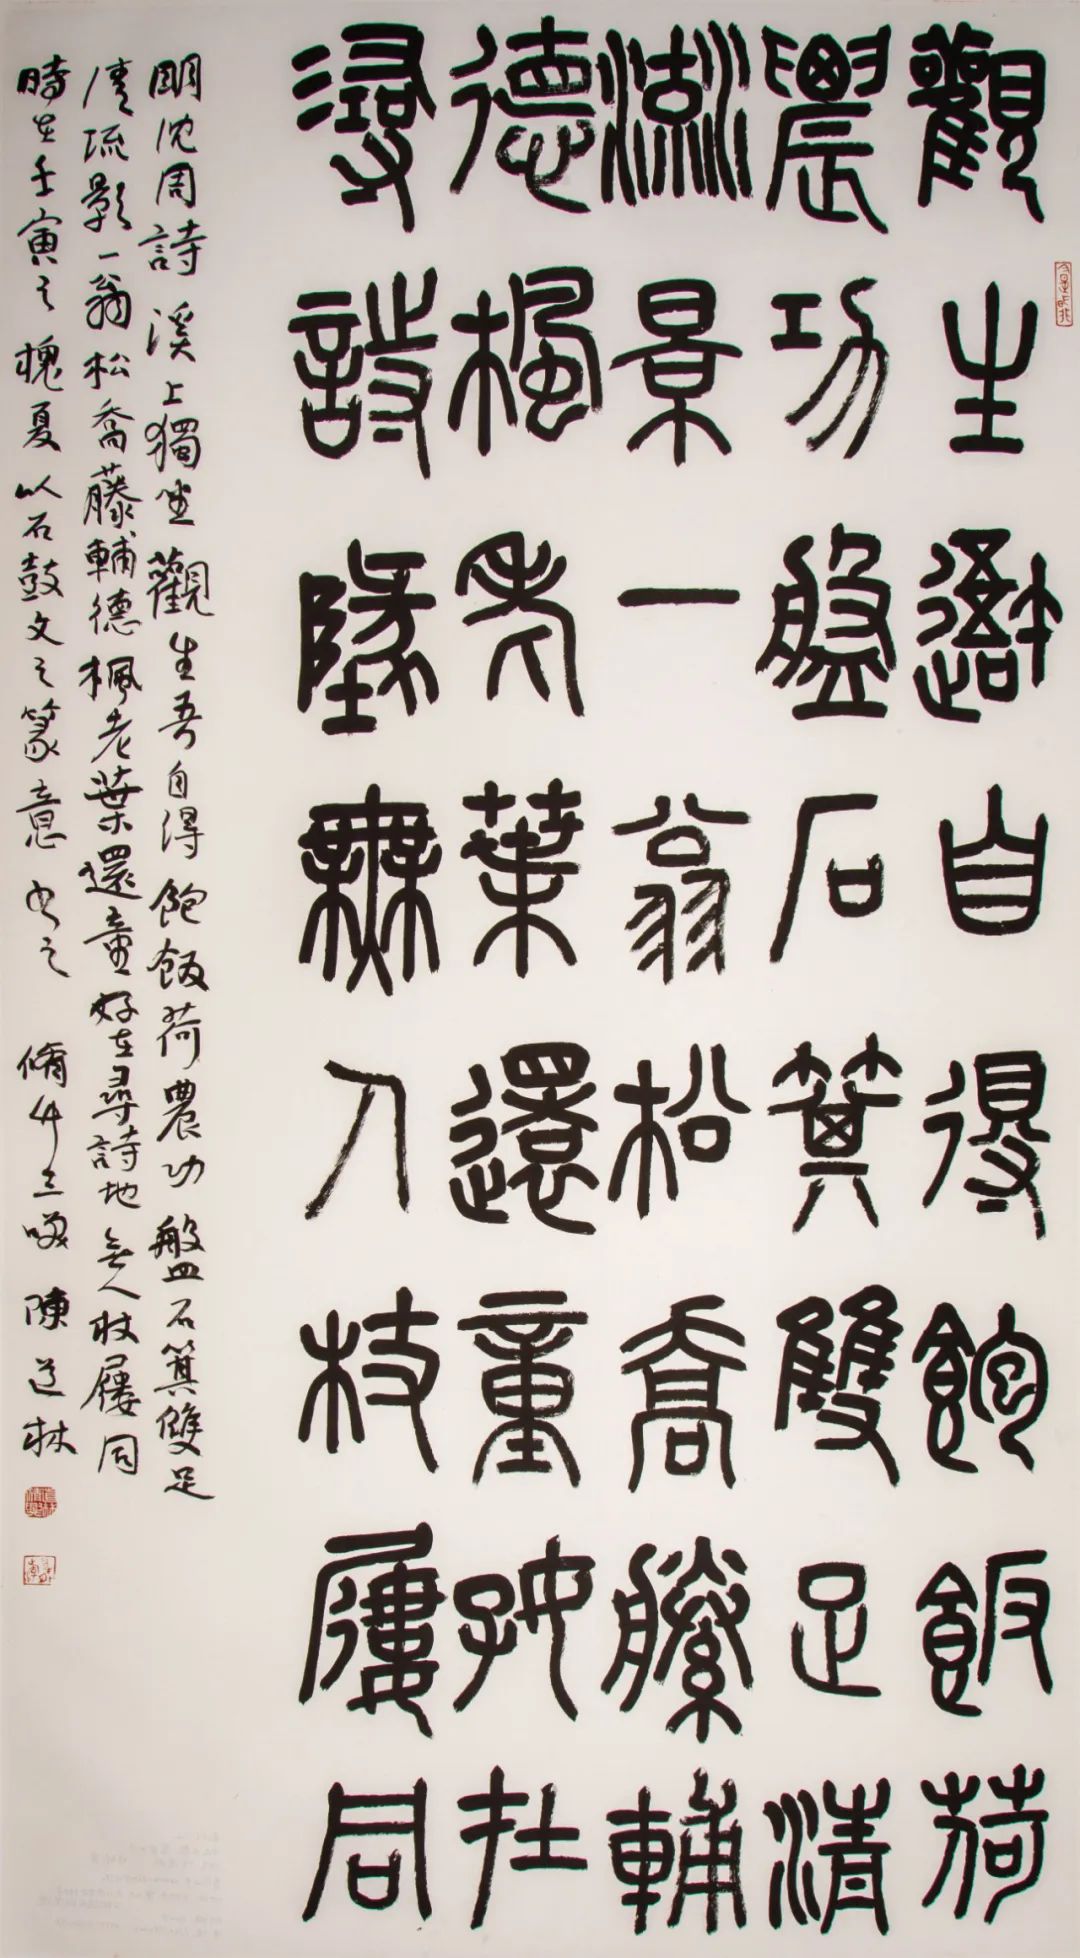 觀生䢩自得飽飯荷
農功盤石箕雙足清
流景一翁松喬藤輔
德楓老葉還童好在
尋詩地無人杖屨同
明沈周詩溪上獨坐觀生吾自得飽飯荷農功盤石箕雙足
清流影一翁松喬藤輔德楓老葉還童好在尋詩地無人杖屨同
時在壬寅之槐夏以石鼓文之篆意書之 脩竹三嘆 陳道林